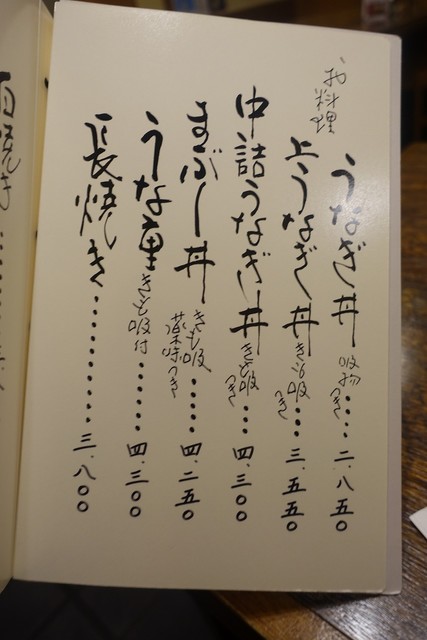 お料理
うなぎ丼 吸物つき……二.八五〇
上うなぎ丼 きも吸つき……三.五五〇
中詰うなぎ丼 きも吸つき……四.三〇〇
まぶし丼 きも吸 薬味つき……四.二五〇
うな重 きも吸付……四.三〇〇
長焼き…………三.八〇〇